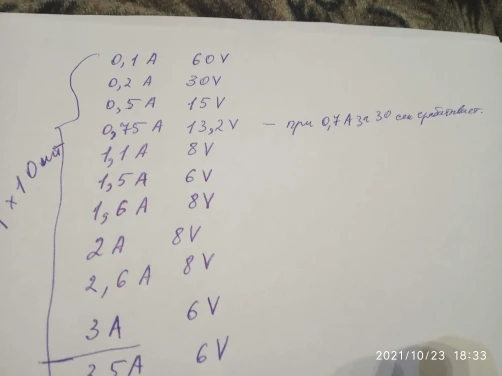 0,1 A 60 V
0,2 A 30 V
0,5 A 15 V
0,75 A 13,2 V — при 0,7 А за 30 сек срабатывает.
1,1 A 8 V
1,5 A 6 V
1,6 A 8 V
2 A 8 V
2,6 A 8 V
3 A 6 V
3,5 A 6 V
x 10 шт
2021/10/23 18:33